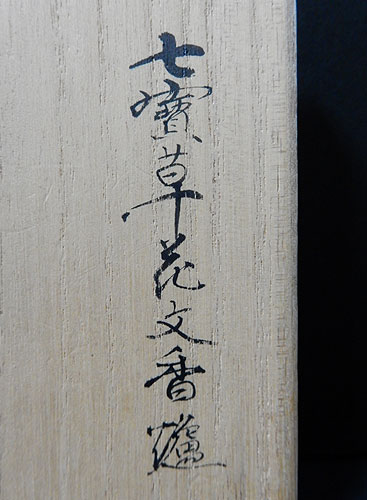 七寶草花文香爐